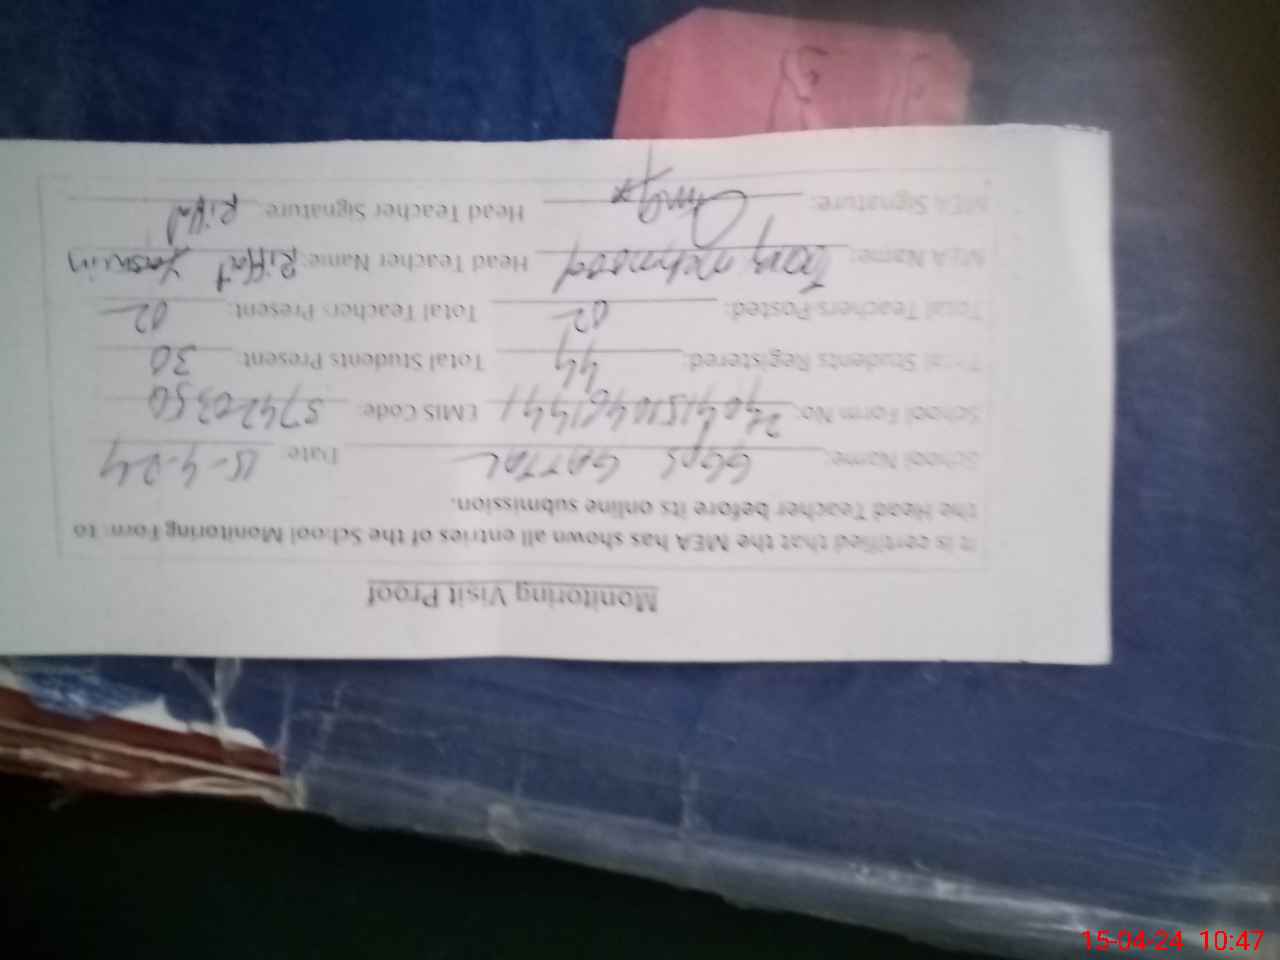 Monitoring Visit Proof
It is certified that the MEA has shown all entries of the School Monitoring Form to
the Head Teacher before its online submission.
School Name: GGPS GATTAL Date: 15-4-24
School Form No: EMIS Code: 37420350
Total Students Registered: 44 Total Students Present: 30
Total Teachers Posted: 02 Total Teachers Present: 02
MEA Name: mehmood Head Teacher Name: Riffat Yasmin
MEA Signature: Head Teacher Signature: Riffat
15-04-24 10:47